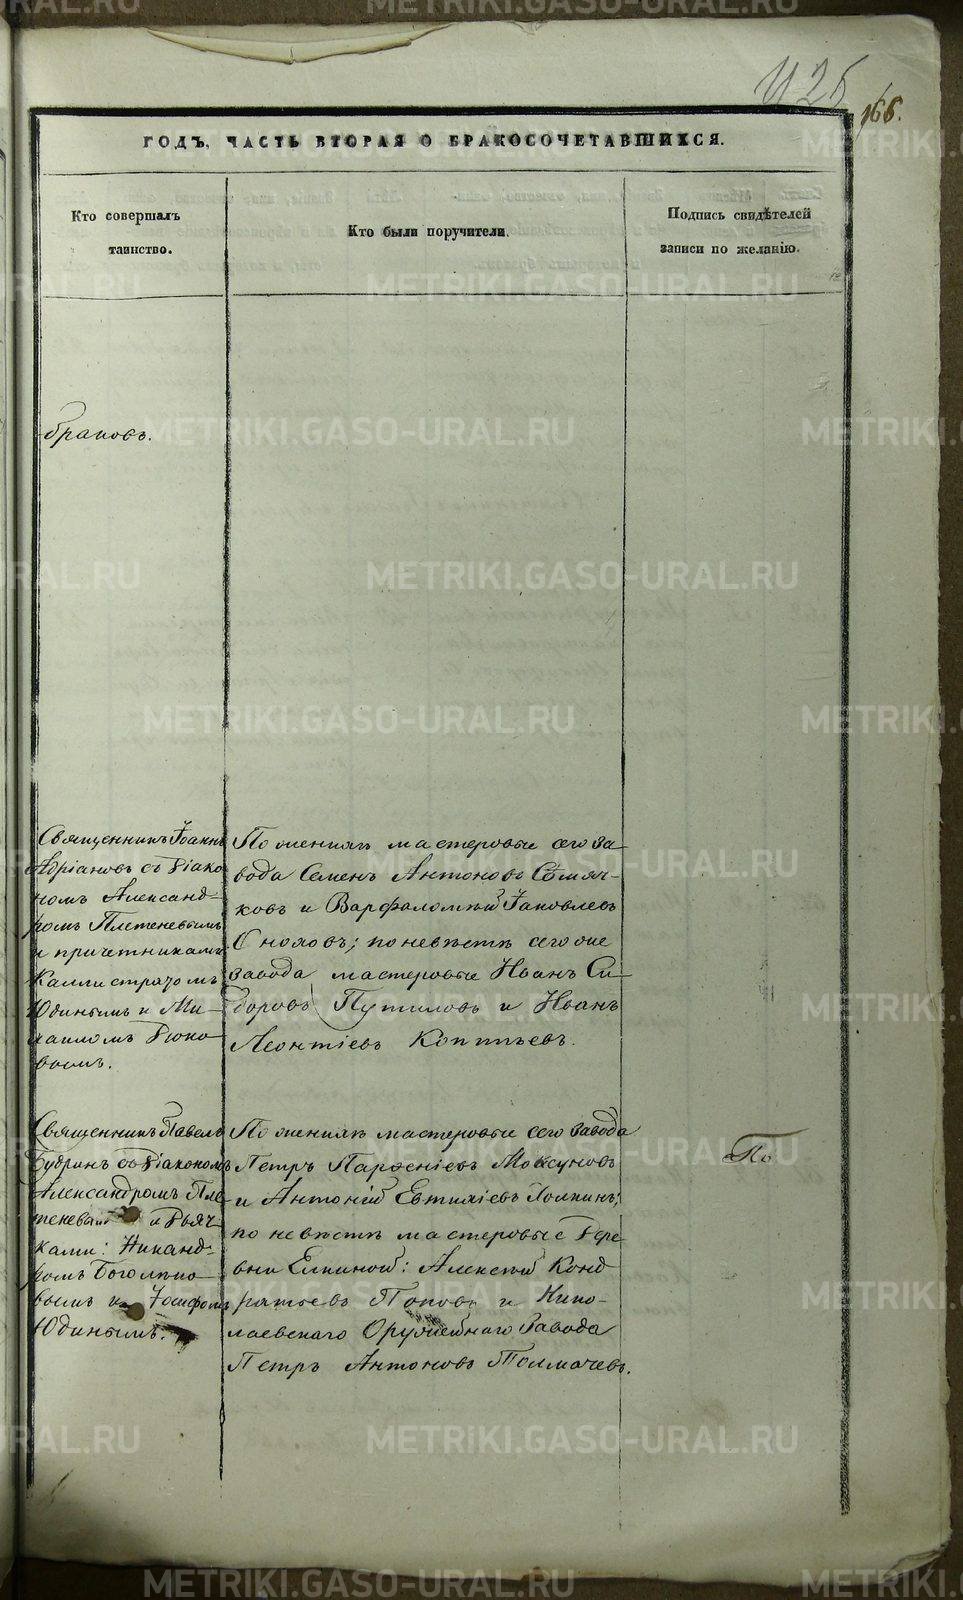 И 25
166.
ГОДЪ, ЧАСТЬ ВТОРАЯ О БРАКОСОЧЕТАВШИХСЯ.
Кто совершалъ
таинство.
Кто были поручители.
Подпись свидѣтелей
записи по желанію.
браковъ.
Священникъ Іоаннъ
Адріановъ съ діако-
номъ Александ-
ромъ Плетеневымъ
и причетниками
Каллистратомъ
Юдинымъ и Ми-
хаиломъ
вымъ.
По женихѣ мастеровые сего за-
вода Семенъ Антоновъ
ковъ и Варфаломѣй Яковлевъ
по невѣстѣ сего же
завода мастеровые Иванъ Си-
доровъ Путиловъ и Иванъ
Леонтіевъ Коптѣевъ.
Священникъ Павелъ
Будринъ съ діакономъ
Александромъ Пле-
теневымъ и дьяч-
ками: Никанд-
ромъ
вымъ и Іосифомъ
Юдинымъ.
По женихѣ мастеровые сего завода
Петръ Парѳеніевъ Моксуновъ
и Антоній Евтихіевъ
по невѣстѣ мастеровые дере-
вни Елкиной: Алексѣй Конд-
ратьевъ Поповъ и Нико-
лаевскаго Оружейнаго завода
Петръ Антоновъ Толмачевъ.
По
METRIKI.GASO-URAL.RU